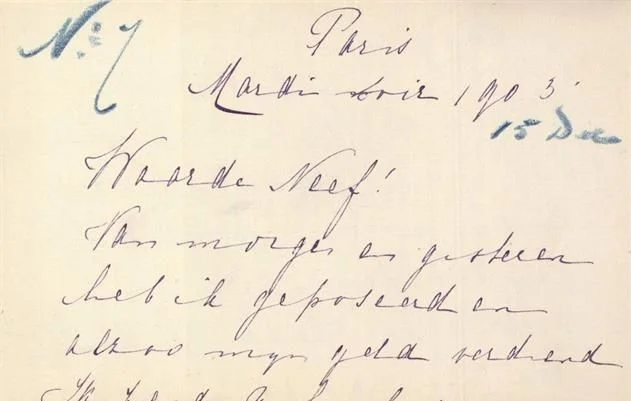 No: 7
Paris
Mardi soir 1903
15 Dec
Waarde Neef!
Van morgen en gisteren
heb ik geposeerd en
alzoo mijn geld verdiend
Ik